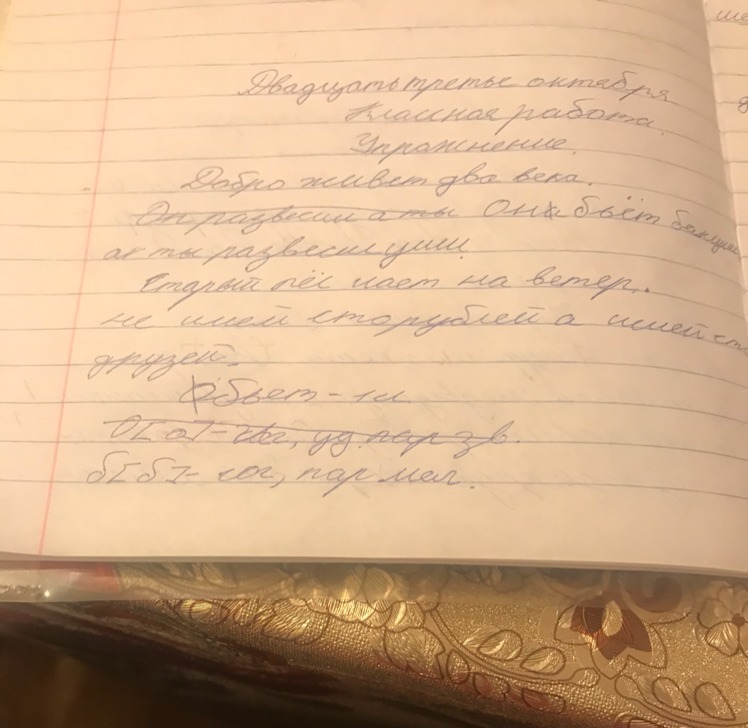 Двадцать третье октября
Классная работа.
Упражнение.
Добро живет два века.
Он развесил а ты Она бьёт баклуши
ак ты развесил уши.
Старый пёс лает на ветер.
не имей сто рублей а имей ст
друзей.
бьет - 1 сл
б[б] - сог, пар мяг.